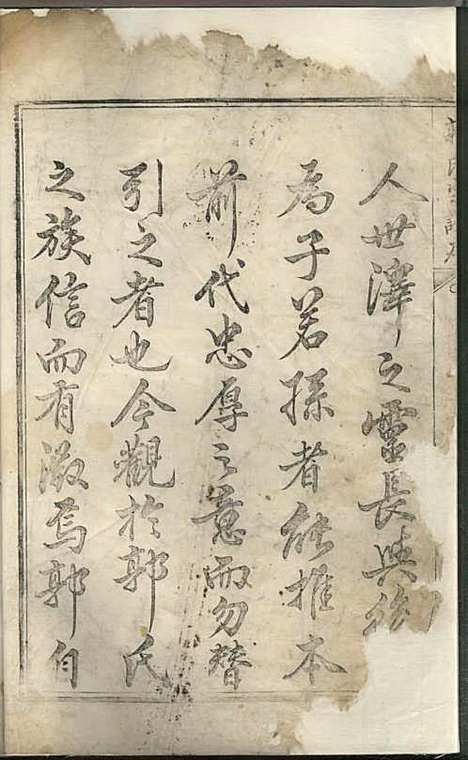 人世澤之靈長與後
為子若孫者能推本
前代忠厚之意而勿替
引之者也今觀於郭氏
之族信而有徵焉郭自